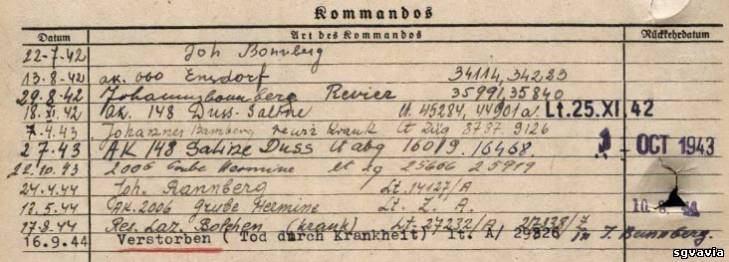 Kommandos
Datum Art des Kommandos Rückkehrdatum
22-7.42 Joh Bannberg
13.8.42 AK. 060 Ensdorf 34114, 34223
29.8.42 Johannisbannberg Revier 35991, 35840
18.XI.42 AK. 148 Duss-Saline lt. 45284, 44901a. Lt. 25. XI. 42
7.4.43 Johannes Bannberg Revier Krank lt Zug 8787. 9126
2 7.43 AK 148 Saline Duss lt abg 16019. 16468. OCT 1943
22.10.43 2006 Grube Hermine lt zg 25606 25919
24.4.44 Joh. Bannberg Lt. 14127/A
12.5.44 AK. 2006 Grube Hermine Lt. Z. A. 10. 8. 44
17.8.44 Res. Laz. Bolchen (krank) Lt. 27232/A 27128/7
16.9.44 Verstorben ( Tod durch Krankheit) lt. A/ 29326 in J. Bannberg.
sgvavia